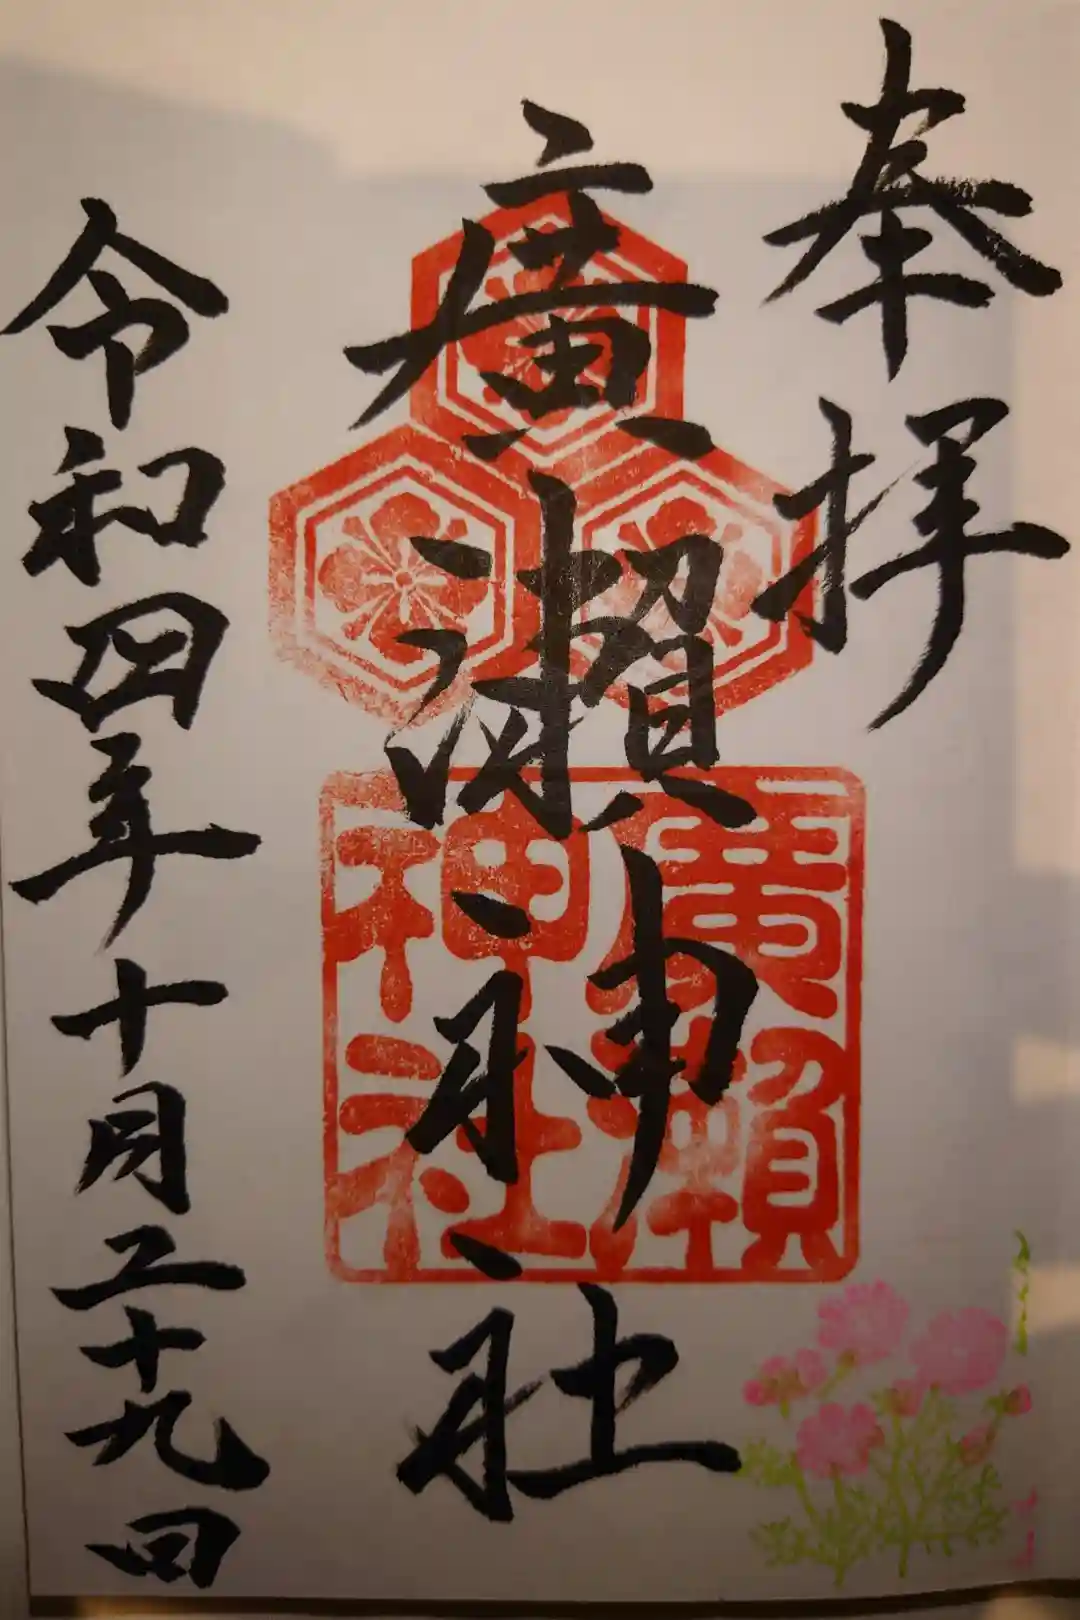 奉拝
廣瀬神社
廣瀬
神社
令和四年十月二十九日